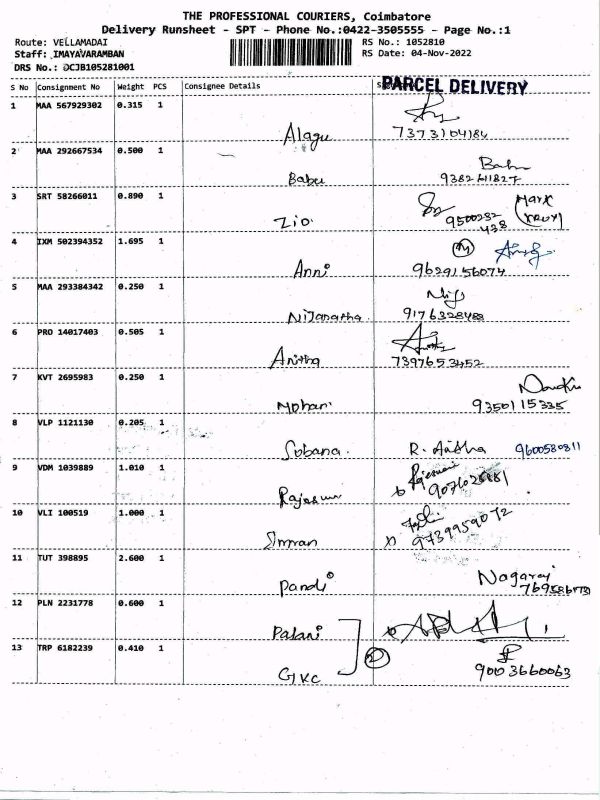 THE PROFESSIONAL COURIERS, Coimbatore
Delivery Runsheet - SPT - Phone No.:0422-3505555 - Page No.:1
Route: VELLAMADAI RS No.: 1052810
Staff: IMAYAVARAMBAN RS Date: 04-Nov-2022
DRS No.: DCJB105281001
S No Consignment No Weight PCS Consignee Details S
PARCEL DELIVERY
1 MAA 567929302 0.315 1
Alagu 7373104184
2 MAA 292667534 0.500 1
Babu Babu 9382611827
3 SRT 58266011 0.890 1
Zio 9500282
438
4 IXM 502394352 1.695 1
Anni 9629156074
5 MAA 293384342 0.250 1
Nijanatha 9176328488
6 PRO 14017403 0.505 1
Anitha 7397653452
7 KVT 2695983 0.250 1
Mohan 9350115335
8 VLP 1121130 0.205 1
Sobana R. Aisha 9600580811
9 VDM 1039889 1.010 1
10 VLI 100519 1.000 1
Simran 9739959072
11 TUT 398895 2.600 1
Pandi Nagaraj
12 PLN 2231778 0.600 1
Palani
13 TRP 6182239 0.410 1
GKC 2 9003660063